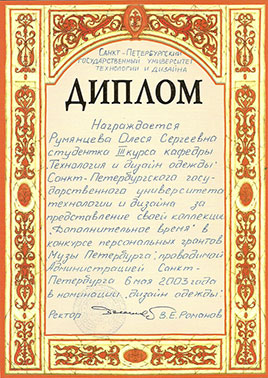 Санкт-Петербургский
государственный университет
технологии и дизайна
ДИПЛОМ
Награждается
Румянцева Олеся Сергеевна
студентка III курса кафедры
"Технология и дизайн одежды"
Санкт-Петербургского госу-
дарственного университета
технологии и дизайна за
представление своей коллекции
"Дополнительное время" в
конкурсе персональных грантов
"Музы Петербурга", проводимой
Администрацией Санкт-
Петербурга 6 мая 2003 года
в номинации "дизайн одежды".
Ректор В.Е. Романов